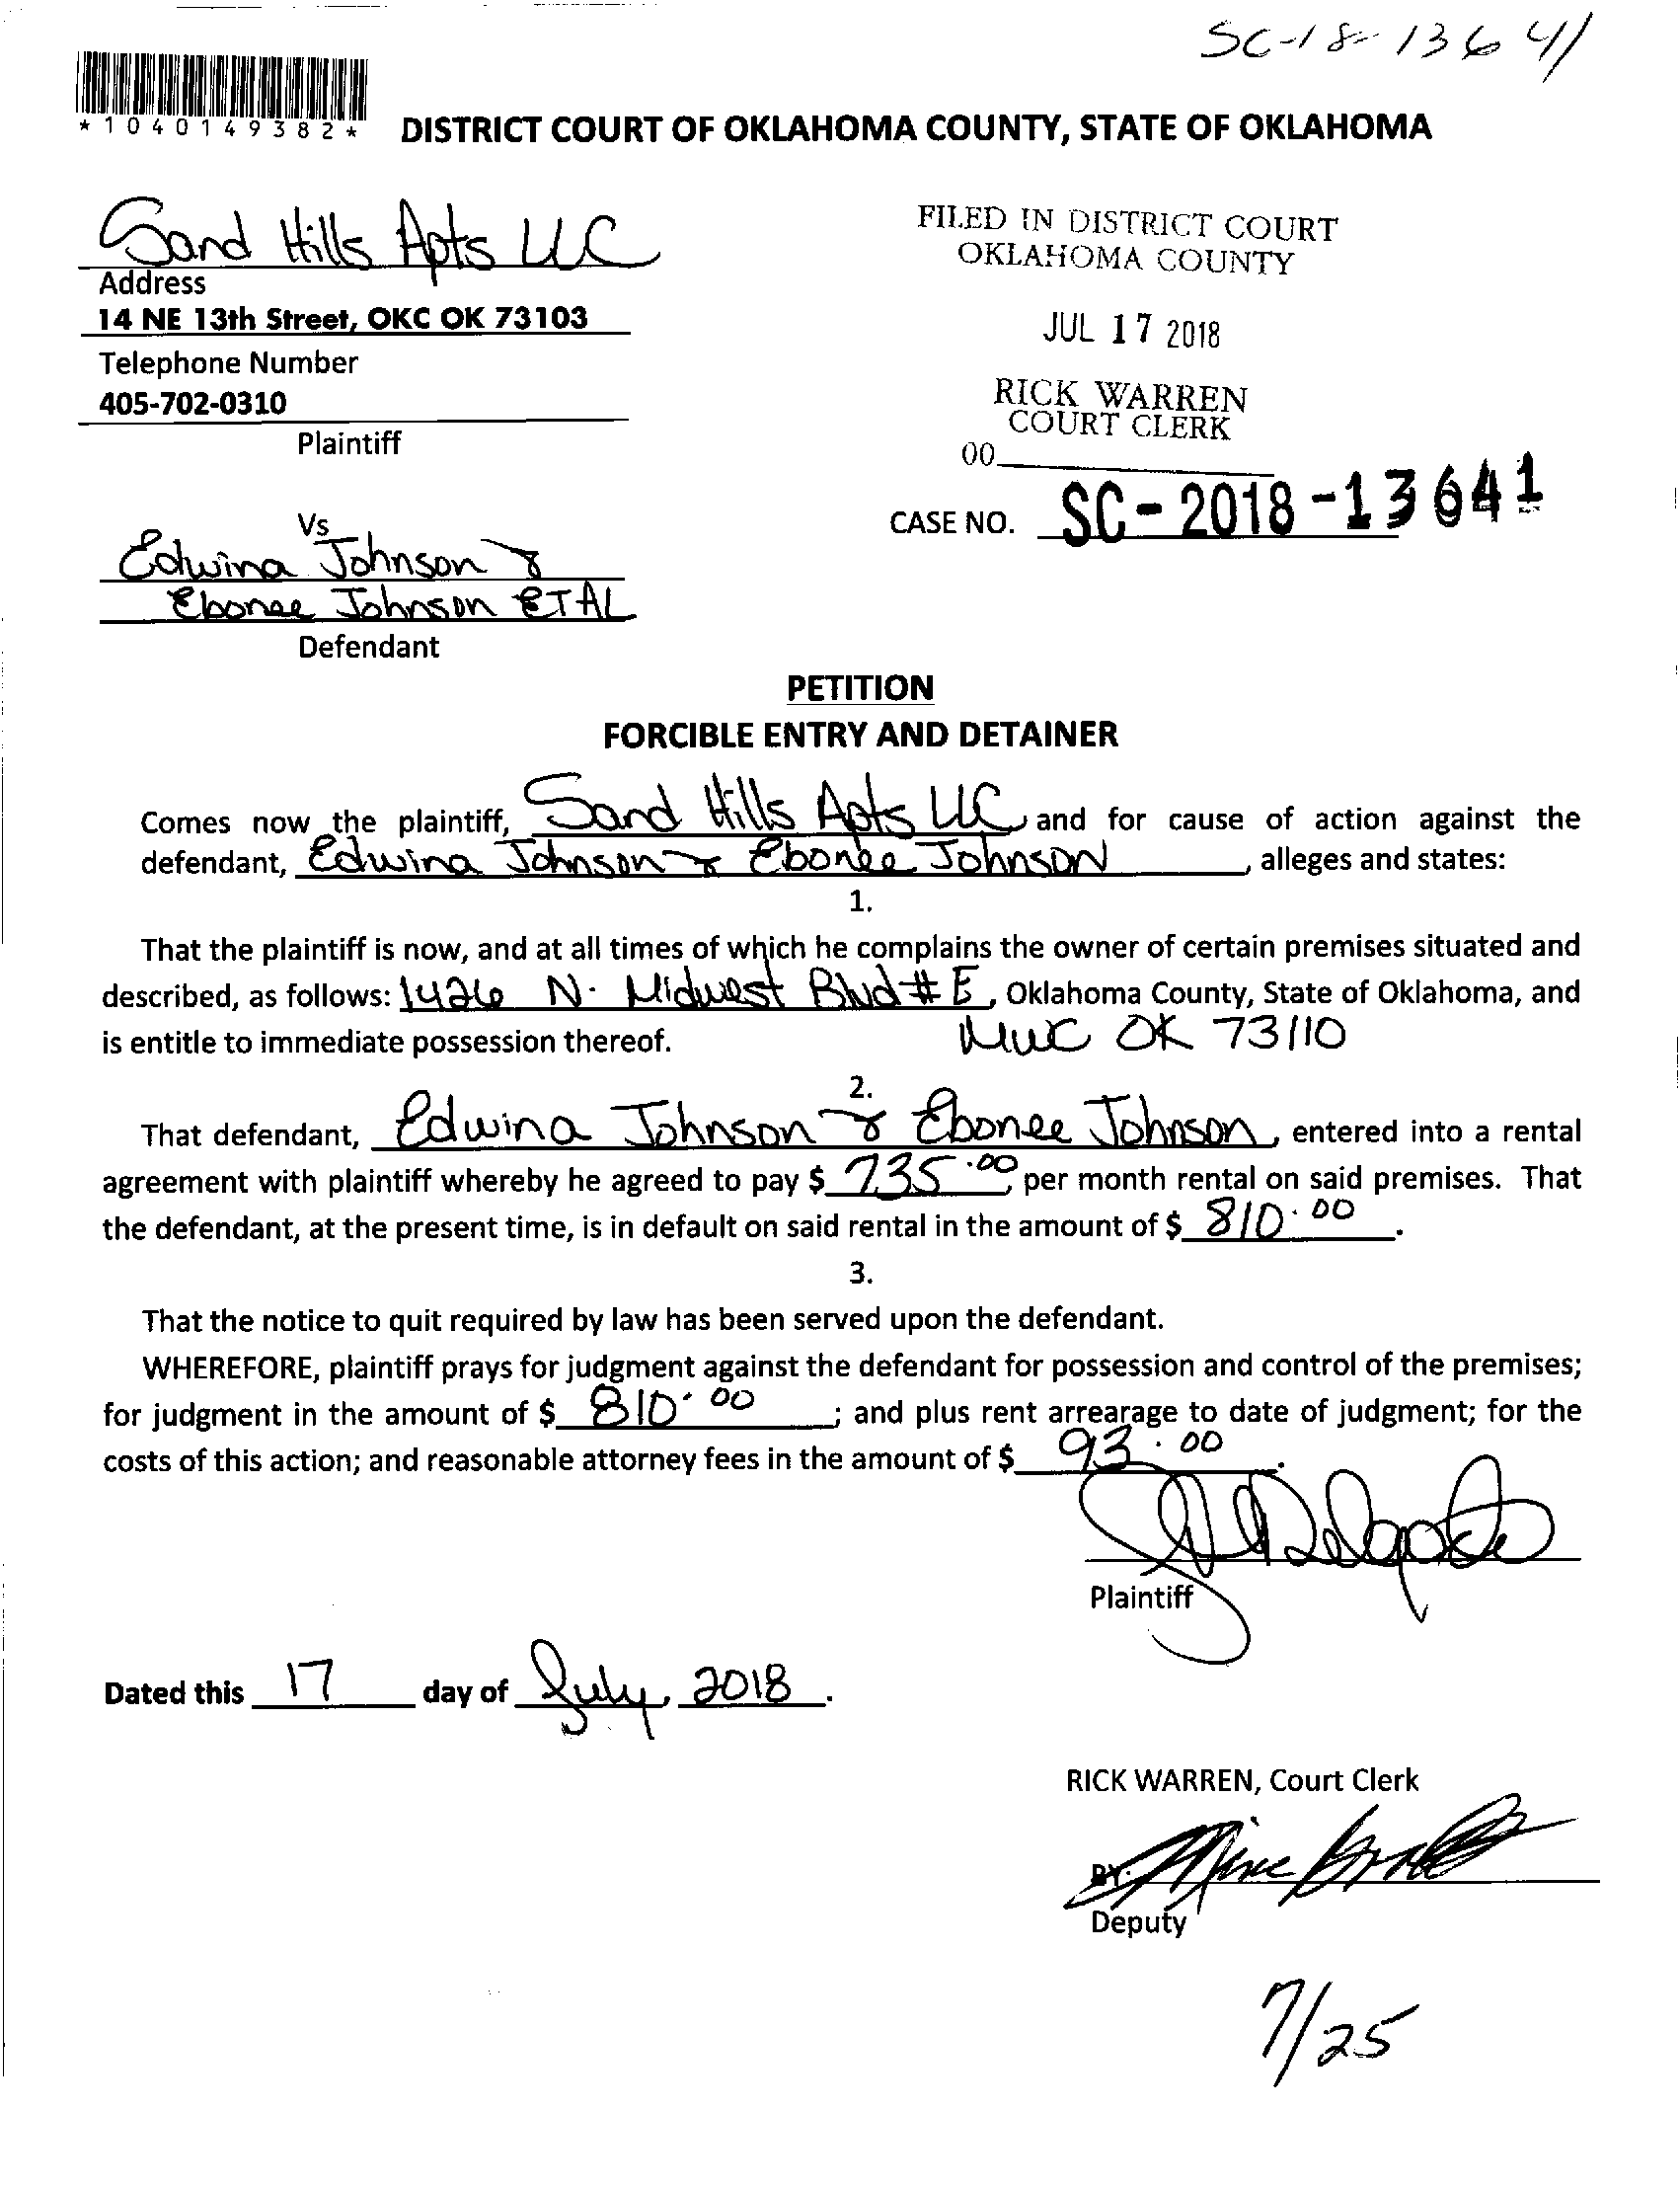 SC-18-13641
*1040149382*
DISTRICT COURT OF OKLAHOMA COUNTY, STATE OF OKLAHOMA
Sand Hills Apts LLC
Address
14 NE 13th Street, OKC OK 73103
Telephone Number
405-702-0310
Plaintiff
FILED IN DISTRICT COURT
OKLAHOMA COUNTY
JUL 17 2018
RICK WARREN
COURT CLERK
00
CASE NO. SC-2018-13641
Vs
Edwina Johnson &
Ebonee Johnson ETAL
Defendant
PETITION
FORCIBLE ENTRY AND DETAINER
Comes now the plaintiff, Sand Hills Apts LLC and for cause of action against the
defendant, Edwina Johnson & Ebonee Johnson, alleges and states:
1.
That the plaintiff is now, and at all times of which he complains the owner of certain premises situated and
described, as follows: 1426 N. Midwest Blvd # E, Oklahoma County, State of Oklahoma, and
is entitle to immediate possession thereof. MWC OK 73110
2.
That defendant, Edwina Johnson & Ebonee Johnson, entered into a rental
agreement with plaintiff whereby he agreed to pay $ 735.00, per month rental on said premises. That
the defendant, at the present time, is in default on said rental in the amount of $ 810.00.
3.
That the notice to quit required by law has been served upon the defendant.
WHEREFORE, plaintiff prays for judgment against the defendant for possession and control of the premises;
for judgment in the amount of $ 810.00; and plus rent arrearage to date of judgment; for the
costs of this action; and reasonable attorney fees in the amount of $ 93.00.
Plaintiff
Dated this 17 day of July, 2018.
RICK WARREN, Court Clerk
BY:
Deputy
7/25